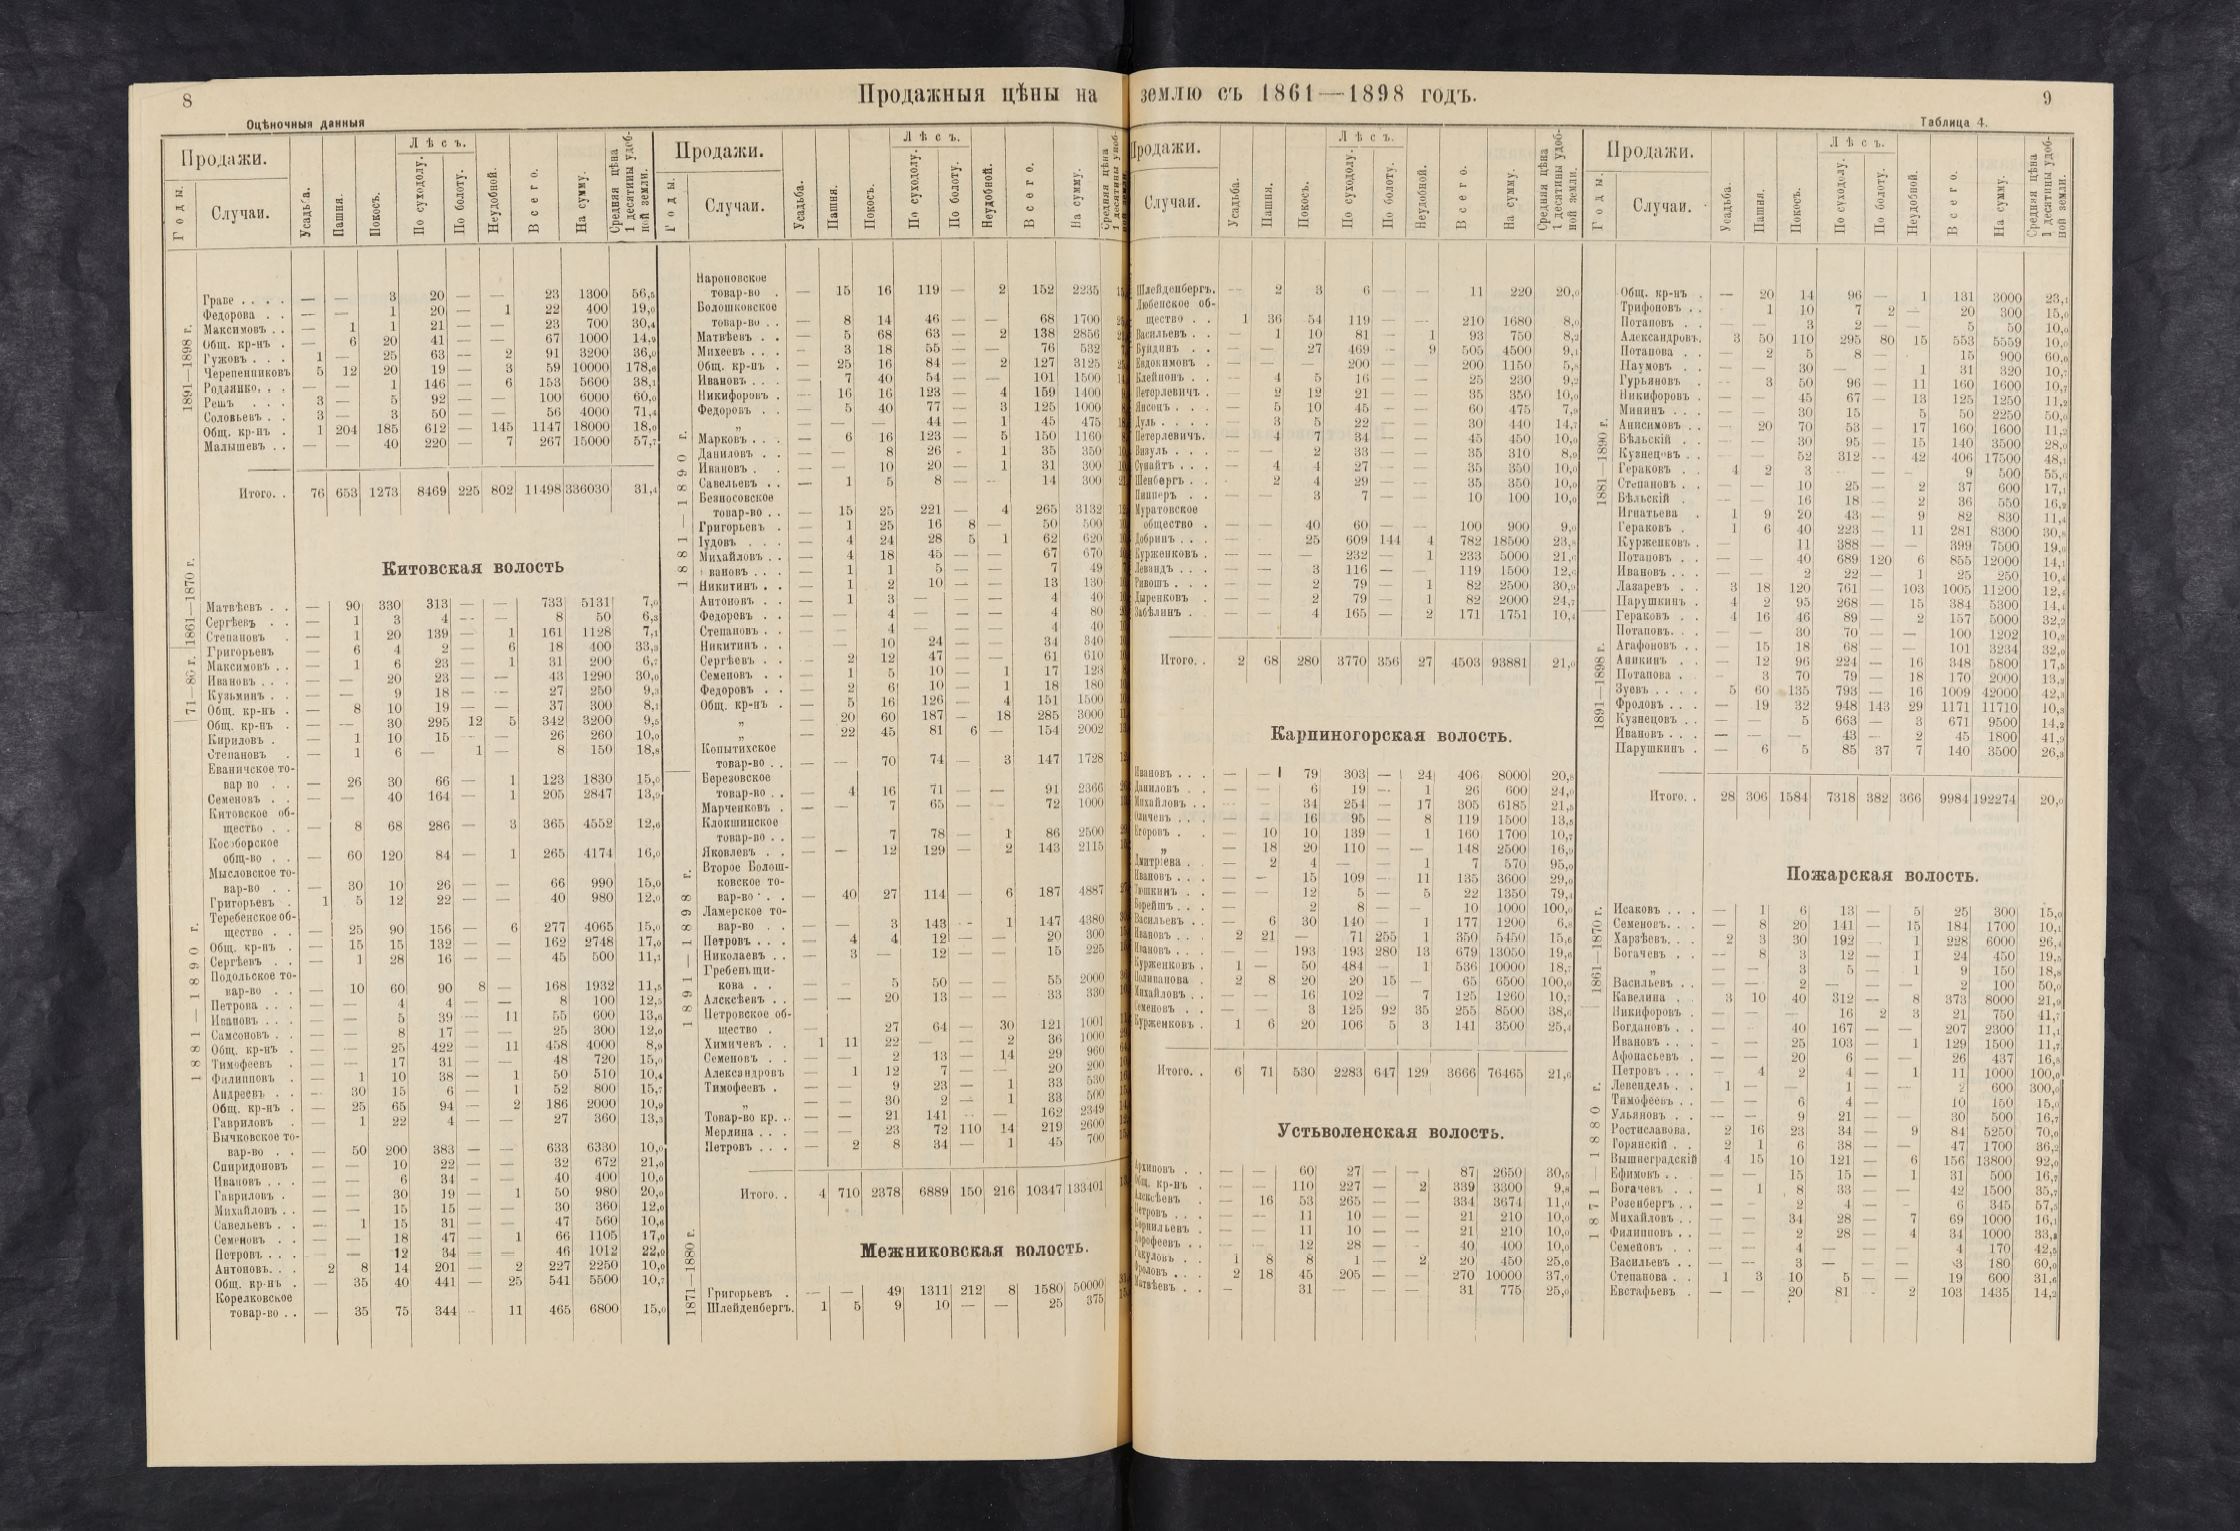 8
Продажныя цѣны на землю съ 1861—1898 годъ.
9
Оцѣночныя данныя
Таблица 4.
Продажи.
Годы.
Случаи.
Усадьба.
Пашня.
Покосъ.
Лѣсъ.
По суходолу.
По болоту.
Неудобной.
Всего.
На сумму.
Средняя цѣна 1 десятины удобной земли.
1891—1898 г.
Граве . . . . — — 3 20 — — 23 1300 56,5
Федорова . . — — 1 20 — 1 22 400 19,0
Максимовъ . . — 1 1 21 — — 23 700 30,4
Общ. кр-нъ . — 6 20 41 — — 67 1000 14,9
Гужовъ . . . 1 — 25 63 — 2 91 3200 36,0
Черепенниковъ 5 12 20 19 — 3 59 10000 178,6
Родзянко. . . — — 1 146 — 6 153 5600 38,1
Решъ . . . 3 — 5 92 — — 100 6000 60,0
Соловьевъ . . 3 — 3 50 — — 56 4000 71,4
Общ. кр-нъ . 1 204 185 612 — 145 1147 18000 18,0
Малышевъ . . — — 40 220 — 7 267 15000 57,7
Итого. . 76 653 1273 8469 225 802 11498 336030 31,4
Китовская волость
1861—1870 г.
Матвѣевъ . . — 90 330 313 — — 733 5131 7,0
Сергѣевъ . . — 1 3 4 — — 8 50 6,3
Степановъ . — 1 20 139 — 1 161 1128 7,1
Григорьевъ — 6 4 2 — 6 18 400 33,3
71—80 г.
Максимовъ . . — 1 6 23 — 1 31 200 6,7
Ивановъ . . . — — 20 23 — — 43 1290 30,0
Кузьминъ . . — — 9 18 — — 27 250 9,3
Общ. кр-нъ . — 8 10 19 — — 37 300 8,1
1881—1890 г.
Общ. кр-нъ . — — 30 295 12 5 342 3200 9,5
Кириловъ . — 1 10 15 — — 26 260 10,0
Степановъ . — 1 6 — 1 — 8 150 18,8
Еваничское то-
вар во . . — 26 30 66 — 1 123 1830 15,0
Семеновъ . . — — 40 164 — 1 205 2847 13,9
Китовское об-
щество . . — 8 68 286 — 3 365 4552 12,6
Кособорское
общ-во . . — 60 120 84 — 1 265 4174 16,0
Мысловское то-
вар-во . . — 30 10 26 — — 66 990 15,0
Григорьевъ . 1 5 12 22 — — 40 980 12,0
Теребенское об-
щество . . — 25 90 156 — 6 277 4065 15,0
Общ. кр-нъ . — 15 15 132 — — 162 2748 17,0
Сергѣевъ . . — 1 28 16 — — 45 500 11,1
Подольское то-
вар-во . . — 10 60 90 8 — 168 1932 11,5
Петрова . . . — — 4 4 — — 8 100 12,5
Ивановъ . . . — — 5 39 — 11 55 600 13,6
Самсоновъ . . — — 8 17 — — 25 300 12,0
Общ. кр-нъ . — — 25 422 — 11 458 4000 8,9
Тимофеевъ . — — 17 31 — — 48 720 15,0
Филипповъ . — 1 10 38 — 1 50 510 10,4
Андреевъ . . — 30 15 6 — 1 52 800 15,7
Общ. кр-нъ . — 25 65 94 — 2 186 2000 10,9
Гавриловъ . — 1 22 4 — — 27 360 13,3
Бычковское то-
вар-во . . — 50 200 383 — — 633 6330 10,0
Спиридоновъ — — 10 22 — — 32 672 21,0
Ивановъ . . . — — 6 34 — — 40 400 10,0
Гавриловъ . — — 30 19 — 1 50 980 20,0
Михайловъ . . — — 15 15 — — 30 360 12,0
Савельевъ . . — 1 15 31 — — 47 560 10,6
Семеновъ . . — — 18 47 — 1 66 1105 17,0
Петровъ . . . — — 12 34 — — 46 1012 22,0
Антоновъ. . . 2 8 14 201 — 2 227 2250 10,0
Общ. кр-нъ . — 35 40 441 — 25 541 5500 10,7
Корелковское
товар-во . . — 35 75 344 — 11 465 6800 15,0
Продажи.
Годы.
Случаи.
Усадьба.
Пашня.
Покосъ.
Лѣсъ.
По суходолу.
По болоту.
Неудобной.
Всего.
На сумму.
Средняя цѣна
1881—1890 г.
Нароновское
товар-во . — 15 16 119 — 2 152 2235
Болошковское
товар-во . . — 8 14 46 — — 68 1700
Матвѣевъ . . — 5 68 63 — 2 138 2856
Михеевъ . . . — 3 18 55 — — 76 532
Общ. кр-нъ . — 25 16 84 — 2 127 3125
Ивановъ . . . — 7 40 54 — — 101 1500
Никифоровъ . — 16 16 123 — 4 159 1400
Федоровъ . . — 5 40 77 — 3 125 1000
„ — — — 44 — 1 45 475
Марковъ . . . — 6 16 123 — 5 150 1160
Даниловъ . . — — 8 26 - 1 35 350
Ивановъ . . — — 10 20 — 1 31 300
Савельевъ . . — 1 5 8 — — 14 300
Безносовское
товар-во . . — 15 25 221 — 4 265 3132
Григорьевъ . — 1 25 16 8 — 50 500
Іудовъ . . . — 4 24 28 5 1 62 620
Михайловъ . . — 4 18 45 — — 67 670
вановъ . . . — 1 1 5 — — 7 49
Никитинъ . . — 1 2 10 — — 13 130
Антоновъ . . — 1 3 — — — 4 40
Федоровъ . . — — 4 — — — 4 80
Степановъ . . — — 4 — — — 4 40
Никитинъ . . — — 10 24 — — 34 340
Сергѣевъ . . — 2 12 47 — — 61 610
Семеновъ . . — 1 5 10 — 1 17 123
Федоровъ . . — 2 6 10 — 1 18 180
Общ. кр-нъ . — 5 16 126 — 4 151 1500
„ — 20 60 187 — 18 285 3000
„ — 22 45 81 6 — 154 2002
Копытихское
товар-во . . — — 70 74 — 3 147 1728
1891—1898 г.
Березовское
товар-во . . — 4 16 71 — — 91 2366
Марченковъ . — — 7 65 — — 72 1000
Клокшинское
товар-во . . — 7 78 — 1 86 2500
Яковлевъ . . — — 12 129 — 2 143 2115
Второе Болош-
ковское то-
вар-во . . — 40 27 114 — 6 187 4887
Ламерское то-
вар-во . . — — 3 143 — 1 147 4380
Петровъ . . . — 4 4 12 — — 20 300
Николаевъ . . — 3 — 12 — — 15 225
Гребеньщи-
кова . . — — 5 50 — — 55 2000
Алексѣевъ . . — — 20 13 — — 33 330
Петровское об-
щество . — 27 64 — 30 121 1001
Химичевъ . . 1 11 22 — — 2 36 1000
Семеновъ . . — — 2 13 — 14 29 960
Александровъ — 1 12 7 — — 20 200
Тимофеевъ . — — 9 23 — 1 33 530
„ — — 30 2 — 1 33 500
Товар-во кр. . . — — 21 141 — — 162 2349
Мерлина . . . — — 23 72 110 14 219 2600
Петровъ . . . — 2 8 34 — 1 45 700
Итого. . 4 710 2378 6889 150 216 10347 133401
Межниковская волость.
1871—1880 г.
Григорьевъ . — — 49 1311 212 8 1580 50000
Шлейденбергъ. 1 5 9 10 — — 25 375
Продажи.
Случаи.
Усадьба.
Пашня.
Покосъ.
Лѣсъ.
По суходолу.
По болоту.
Неудобной.
Всего.
На сумму.
Средняя цѣна 1 десятины удобной земли.
Шлейденбергъ. — 2 3 6 — — 11 220 20,0
Любенское об-
щество . . 1 36 54 119 — — 210 1680 8,0
Васильевъ . . — 1 10 81 — 1 93 750 8,2
Буйдинъ . . — — 27 469 — 9 505 4500 9,1
Евдокимовъ . — — — 200 — — 200 1150 5,8
Клейнонъ . . — 4 5 16 — — 25 230 9,2
Петерлевичъ . — 2 12 21 — — 35 350 10,0
Янсонъ . . . — 5 10 45 — — 60 475 7,9
Дуль . . . . — 3 5 22 — — 30 440 14,7
Петерлевичъ. — 4 7 34 — — 45 450 10,0
Визуль . . . — — 2 33 — — 35 310 8,9
Сунайтъ . . . — 4 4 27 — — 35 350 10,0
Шенбергъ . . 2 4 29 — — 35 350 10,0
Пипперъ . . — — 3 7 — — 10 100 10,0
Муратовское
общество . — — 40 60 — — 100 900 9,0
Добринъ . . . — — 25 609 144 4 782 18500 23,8
Курженковъ . — — — 232 — 1 233 5000 21,6
Левандъ . . . — — 3 116 — — 119 1500 12,6
Ривошъ . . . — — 2 79 — 1 82 2500 30,9
Дыренковъ . — — 2 79 — 1 82 2000 24,7
Забѣлинъ . . — — 4 165 — 2 171 1751 10,4
Итого. . 2 68 280 3770 356 27 4503 93881 21,0
Карпиногорская волость.
Ивановъ . . . — — 79 303 — 24 406 8000 20,8
Даниловъ . . — — 6 19 — 1 26 600 24,0
Михайловъ . . — — 34 254 — 17 305 6185 21,5
Оличевъ . . — — 16 95 — 8 119 1500 13,5
Егоровъ . . — 10 10 139 — 1 160 1700 10,7
„ — 18 20 110 — — 148 2500 16,9
Дмитріева . . — 2 4 — — 1 7 570 95,0
Ивановъ . . . — — 15 109 — 11 135 3600 29,0
Тюшкинъ . . — — 12 5 — 5 22 1350 79,4
Борейшъ . . . — — 2 8 — — 10 1000 100,0
Васильевъ . . — 6 30 140 — 1 177 1200 6,8
Ивановъ . . . 2 21 — 71 255 1 350 5450 15,6
Ивановъ . . . — — 193 193 280 13 679 13050 19,6
Курженковъ . 1 — 50 484 — 1 536 10000 18,7
Поливанова . 2 8 20 20 15 — 65 6500 100,0
Михайловъ . . — — 16 102 — 7 125 1260 10,7
Семеновъ . . — — 3 125 92 35 255 8500 38,6
Курженковъ . 1 6 20 106 5 3 141 3500 25,4
Итого. . 6 71 530 2283 647 129 3666 76465 21,6
Устьволенская волость.
Архиповъ . . — — 60 27 — — 87 2650 30,5
Общ. кр-нъ . — — 110 227 — 2 339 3300 9,8
Алексѣевъ . — 16 53 265 — — 334 3674 11,0
Петровъ . . . — — 11 10 — — 21 210 10,0
Корнильевъ . — — 11 10 — — 21 210 10,0
Дорофеевъ . . — — 12 28 — — 40 400 10,0
1 8 8 1 — 2 20 450 25,0
Фроловъ . . . 2 18 45 205 — — 270 10000 37,0
Матвѣевъ . . — 31 — — — 31 775 25,0
Продажи.
Годы.
Случаи.
Усадьба.
Пашня.
Покосъ.
Лѣсъ.
По суходолу.
По болоту.
Неудобной.
Всего.
На сумму.
Средняя цѣна 1 десятины удобной земли.
1881—1890 г.
Общ. кр-нъ . — 20 14 96 — 1 131 3000 23,1
Трифоновъ . . 1 10 7 2 — 20 300 15,0
Потаповъ . . — — 3 2 — — 5 50 10,0
Александровъ. 3 50 110 295 80 15 553 5559 10,0
Потапова . . — 2 5 8 — 15 900 60,0
Наумовъ . . — — 30 — — 1 31 320 10,7
Гурьяновъ . 3 50 96 — 11 160 1600 10,7
Никифоровъ . — — 45 67 — 13 125 1250 11,2
Мининъ . . . — — 30 15 — 5 50 2250 50,0
Анисимовъ . . — 20 70 53 — 17 160 1600 11,2
Бѣльскій . . — — 30 95 — 15 140 3500 28,0
Кузнецовъ . . — — 52 312 — 42 406 17500 48,1
Гераковъ . . 4 2 3 — — — 9 500 55,6
Степановъ . . — — 10 25 — 2 37 600 17,1
Бѣльскій . — — 16 18 — 2 36 550 16,2
Игнатьева . 1 9 20 43 — 9 82 830 11,4
Гераковъ . 1 6 40 223 — 11 281 8300 30,8
Курженковъ . — 11 388 — — 399 7500 19,0
Потаповъ . . — 40 689 120 6 855 12000 14,1
Ивановъ . . . — — 2 22 — 1 25 250 10,4
Лазаревъ . . 3 18 120 761 — 103 1005 11200 12,4
Парушкинъ . 4 2 95 268 — 15 384 5300 14,4
1891—1898 г.
Гераковъ . . 4 16 46 89 — 2 157 5000 32,2
Потаповъ. . . — — 30 70 — — 100 1202 10,2
Агафоновъ . . — 15 18 68 — — 101 3234 32,0
Аникинъ . . — 12 96 224 — 16 348 5800 17,5
Потапова . — 3 70 79 — 18 170 2000 13,2
Зуевъ . . . . 5 60 135 793 — 16 1009 42000 42,3
Фроловъ . . . — 19 32 948 143 29 1171 11710 10,3
Кузнецовъ . . — — 5 663 — 3 671 9500 14,2
Ивановъ . . . — — — 43 — 2 45 1800 41,9
Парушкинъ . — 6 5 85 37 7 140 3500 26,3
Итого. . 28 306 1584 7318 382 366 9984 192274 20,0
Пожарская волость.
1861—1870 г.
Исаковъ . . . — 1 6 13 — 5 25 300 15,0
Семеновъ. . . — 8 20 141 — 15 184 1700 10,1
Харзѣевъ. . . 2 3 30 192 — 1 228 6000 26,4
Богачевъ . . — 8 3 12 — 1 24 450 19,5
„ — — 3 5 — 1 9 150 18,8
Васильевъ . . — — 2 — — — 2 100 50,0
Кавелина . . 3 10 40 312 — 8 373 8000 21,9
1871—1880 г.
Никифоровъ . — — — 16 2 3 21 750 41,7
Богдановъ . . — — 40 167 — — 207 2300 11,1
Ивановъ . . . — — 25 103 — 1 129 1500 11,7
Афонасьевъ . — — 20 6 — — 26 437 16,8
Петровъ . . . — 4 2 4 — 1 11 1000 100,0
Левендель . . 1 — — 1 — — 2 600 300,0
Тимофеевъ . . — — 6 4 — — 10 150 15,0
Ульяновъ . . — — 9 21 — — 30 500 16,7
Ростиславова. 2 16 23 34 — 9 84 5250 70,0
Горянскій . . 2 1 6 38 — — 47 1700 36,2
Вышнеградскій 4 15 10 121 — 6 156 13800 92,0
Ефимовъ . . — — 15 15 — 1 31 500 16,7
Богачевъ . . — 1 8 33 — — 42 1500 35,7
Розенбергъ . . — — 2 4 — — 6 345 57,5
Михайловъ . . — — 34 28 — 7 69 1000 16,1
Филипповъ . . — — 2 28 — 4 34 1000 33,3
Семеновъ . . — — 4 — — — 4 170 42,5
Васильевъ . . — — 3 — — — 3 180 60,0
Степанова . . 1 3 10 5 — — 19 600 31,6
Евстафьевъ . — — 20 81 — 2 103 1435 14,2